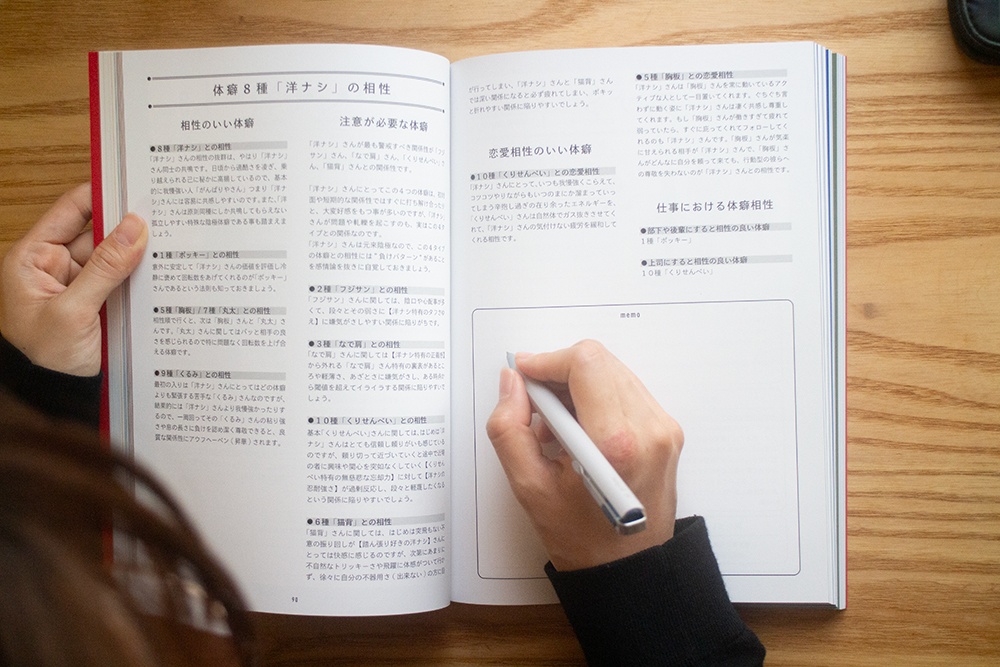 体癖8種「洋ナシ」の相性
相性のいい体癖
●8種「洋ナシ」との相性
「洋ナシ」さんの相性の抜群は、やはり「洋ナシ」
さん同士の共鳴です。日頃から過酷さを凌ぎ、乗
り越えられる己に秘かに高揚しているので、基本
的に我慢強い人「がんばりやさん」つまり「洋ナ
シ」さんには容易に共感しやすいのです。また、「洋ナ
シ」さんは原則同種にしか共鳴してもらえない
孤立しやすい特殊な陰極体癖である事も踏まえま
しょう。
●1種「ポッキー」との相性
意外に安定して「洋ナシ」さんの価値を評価し冷
静に褒めて回転数をあげてくれるのが「ポッキー」
さんであるという法則も知っておきましょう。
●5種「胸板」/7種「丸太」との相性
相性順で行くと、次は「胸板」さんと「丸太」さ
んです。「丸太」さんに関してはパッと相手の良
さを感じられるので特に問題なく回転数を上げ合
える体癖です。
●9種「くるみ」との相性
最初の入りは「洋ナシ」さんにとってはどの体癖
よりも緊張する苦手な「くるみ」さんなのですが、
結果的には「洋ナシ」さんより我慢強かったりす
るので、一周回ってその「くるみ」さんの粘り強
さや息の長さに負けを認め潔く尊敬できると、良
質な関係性にアウフヘーベン(昇華)されます。
注意が必要な体癖
「洋ナシ」さんが最も警戒すべき関係性が「フジ
サン」さん、「なで肩」さん、「くりせんべい」さ
ん、「猫背」さんとの関係性です。
「洋ナシ」さんにとってこの4つの体癖は、初対
面や短期的な関係性ではすぐに打ち解け合ったり
と、大変好感をもつ事が多いのですが、「洋ナシ」
さんが問題や軋轢を起こすのも、実はこの4タ
イプとの関係なのです。
「洋ナシ」さんは元来陰極なので、この4タイプ
の体癖との相性には"負けパターン"があること
を感情論を抜きに自覚しておきましょう。
●2種「フジサン」との相性
「フジサン」さんに関しては、陰口や心配事が多
くて、段々とその弱さに【洋ナシ特有のタスク加
え】に嫌気がさしやすい関係に陥りがちです。
●3種「なで肩」との相性
「なで肩」さんに関しては【洋ナシ特有の正義性】
から外れる「なで肩」さん特有の裏表があるとこ
ろや軽薄さ、あざとさに嫌気がさし、ある時点か
ら閾値を超えてイライラする関係に陥りやすいで
しょう。
●10種「くりせんべい」との相性
基本「くりせんべい」さんに関しては、はじめは「洋
ナシ」さんはとても信頼し頼りがいも感じている
のですが、頼り切って近づいていくと途中で近場
の者に興味や関心を突如なくしていく【くりせん
べい特有の無慈悲な忘却力】に対して【洋ナシの
忍耐強さ】が過剰反応し、段々と軽蔑したくなる
という関係に陥りやすいでしょう。
●6種「猫背」との相性
「猫背」さんに関しては、はじめは突飛もない不
意の振り回しが【踏ん張り好きの洋ナシ】さんに
とっては快感に感じるのですが、次第にあまりに
不自然なトリッキーさや飛躍に体感がついて行け
ず、徐々に自分の不器用さ(出来ない)の方に目
90
が行ってしまい、「洋ナシ」さんと「猫背」さん
では深い関係になると必ず疲れてしまい、ポキッ
と折れやすい関係に陥りやすいでしょう。
恋愛相性のいい体癖
●10種「くりせんべい」との恋愛相性
「洋ナシ」さんにとって、いつも我慢強くこらえて、
コツコツやりながらもいつのまにか溜まっていっ
てしまう辛抱し過ぎの在り余ったエネルギーを、
「くりせんべい」さんは自然体でガス抜きさせてく
れて、「洋ナシ」さんの気付けない疲労を緩和して
くれる相性です。
●5種「胸板」との恋愛相性
「洋ナシ」さんは「胸板」さんを常に動いているアク
ティブな人として一目置いてくれます。ぐちぐち言
わずに動く姿に「洋ナシ」さんは凄く共感し尊重し
てくれます。もし「胸板」さんが動きすぎて疲れて
弱っていたら、すぐに訪ってくれてフォローしてく
れるのも「洋ナシ」さんです。「胸板」さんが気楽
に甘えられる相手が「洋ナシ」さんで、「胸板」さ
んがどんなに自分を頼って来ても、行動型の彼らへ
の尊敬を失わないのが「洋ナシ」さんとの相性です。
仕事における体癖相性
●部下や後輩にすると相性の良い体癖
1種「ポッキー」
●上司にすると相性の良い体癖
10種「くりせんべい」
memo